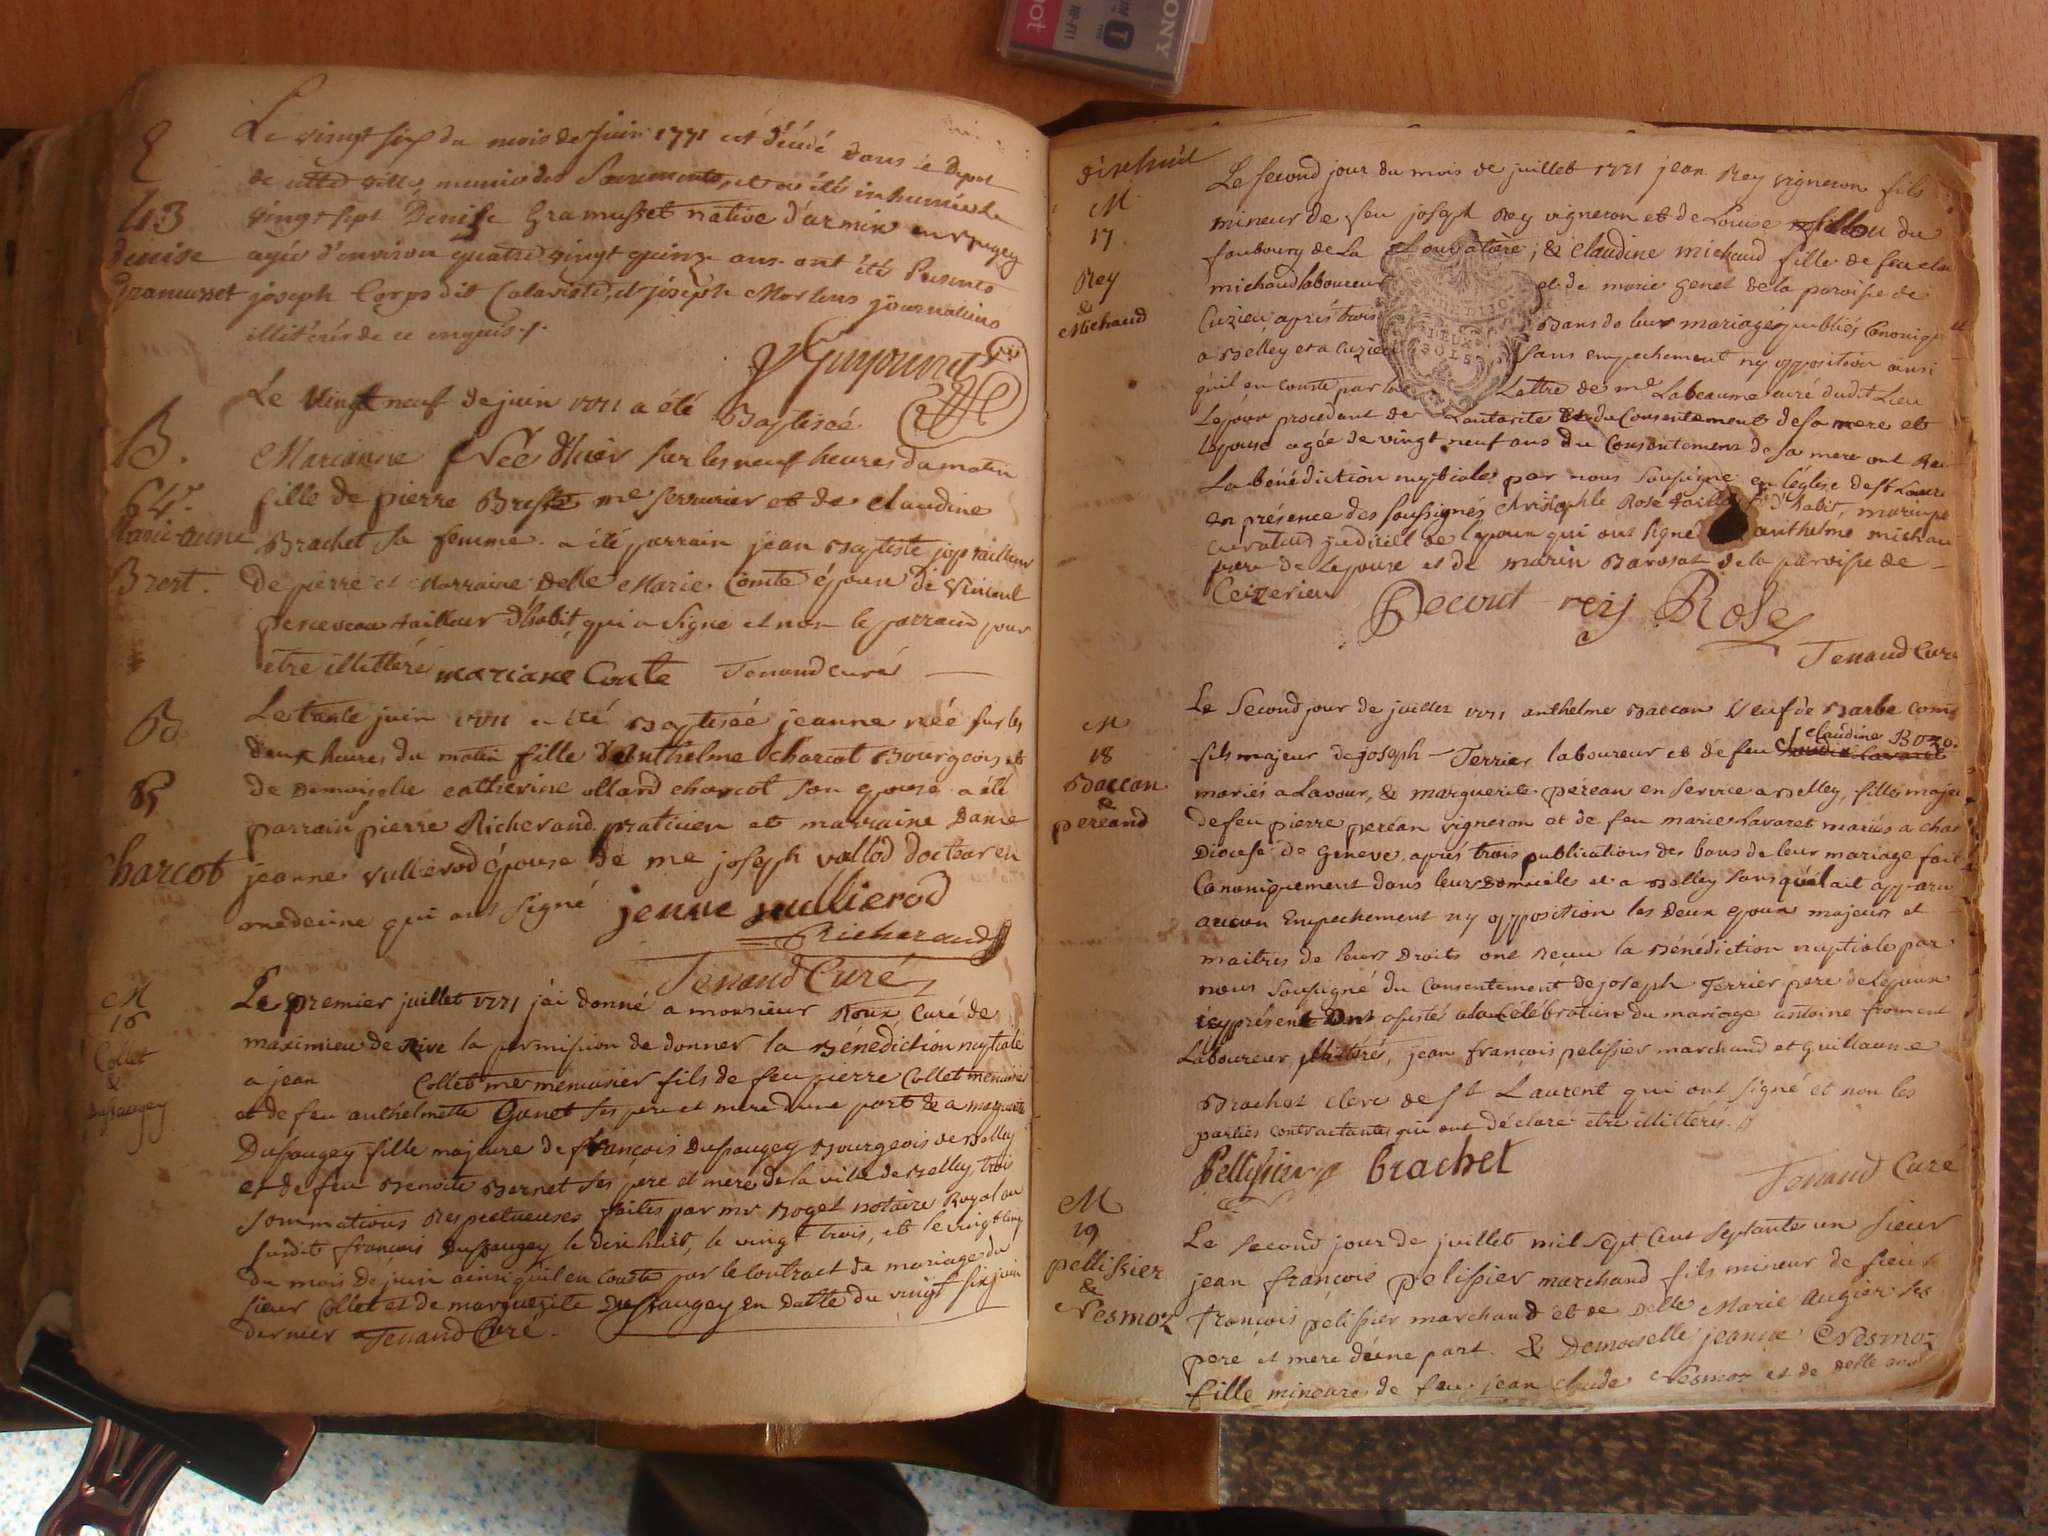 SONY
Le vingt six du mois de juin 1771 est décédé dans le Depot
de cette ville, munie des Sacrements, et a été inhumée le
43
vingt sept Denise Gramusset native d'armix en Bugey
denise
agée d'environ quatre vingt quinze ans ont été Presents
Gramusset
joseph Corps dit Calaviste, et joseph Martins journaliers
illiterés de ce enquis ./.
Le Vingt neuf de juin 1771 a été Baptiseé
B.
Marianne Neé Hier sur les neuf heures du matin
64.
fille de pierre Brest me serrurier et de claudine
Marie-anne
Brachet sa femme. a été parrain jean Baptiste tailleur
Brest.
de pierre et Marraine Delle Marie Comte épouse de Vincent
perceveau tailleur d'habit, qui a Signé et non le parrain pour
etre illettéré mariane Conte Tenand curé
B
Le trente juin 1771 a été Baptiseé jeanne neé sur les
deux heures du matin fille d'Anthelme charcot Bourgeois et
65
de Demoiselle catherine ollard charcot son epouse a été
parrain pierre Richerand praticien et marraine Dame
Charcot
jeanne Vullierod épouse de me joseph vallod docteur en
medecine qui ont signé jenne vullierod
Richerand
Tenand Curé
M
16
Collet
&
Dussaugey
Le premier juillet 1771 j'ai donné a monsieur Roux Curé de
maximieu de Rive la permission de donner la Bénédiction nuptiale
a jean Collet me menuisier fils de feu pierre Collet menuisier
et de feu anthelmette Ganet ses pere et mere d'une part & a marguerite
Dussaugey fille majeure de françois Dussaugey Bourgeois de Belley
et de feu Benoite Bernet ses pere et mere de la ville de Belley, trois
Sommations Respectueuses faites par mr Roget notaire Royal au
susdit françois Dussaugey le dix huit, le vingt trois, et le vingt cinq
du mois de juin ainsi qu'il en conste par le Contract de mariage du
sieur Collet et de marguerite Dussaugey en datte du vingt six juin
dernier Tenand Curé.
dixhuit
M
17
Rey
&
Michaud
Le second jour du mois de juillet 1771 jean Rey vigneron fils
mineur de feu joseph Rey vigneron et de Louise fillou du
faubourg de La Louvatière; & claudine michaud fille de feu
michaud laboureur et de marie genet de la paroisse de
Cuzieu après trois Bans de leur mariage publiés Canoniq
a Belley et a Cuzieu sans empechement ny opposition ainsi
qu'il en conste par la Lettre de mr Labeaume curé dudit Lieu
Lepoux procedant de L'autorité et du Consentement de sa mere et
Lepouse agée de vingt neuf ans du Consentement de sa mere ont
La bénédiction nuptiale par nous soussigné en l'église de st Laurent
en présence des soussignés christophle Rose tailleur d'habit,
curateur judiciel de l'epoux qui ont signé anthelme michau
frere de Lepouse et de marin Bavosat de la paroisse de
Ceizerieu Decout rey Rose
Tenand Curé
M
18
Baccan
&
pereand
Le Second jour de juillet 1771 anthelme Baccan Veuf de Barbe
claudine Bozo
fils majeur de joseph Terrier laboureur et de feu
mariés a Lavour, & marguerite péréan en service a Belley, fille majeu
de feu pierre peréan vigneron et de feu marie Lavaret mariés a
Diocese de Geneve, après trois publications des bans de leur mariage fait
Canoniquement dans leurs domiciles et a Belley sans qu'il ait apparu
aucun Empechement ny opposition les deux epoux majeurs et
maitres de leurs Droits ont Reçu la Bénédiction nuptiale par
nous Soussigné du Consentement de joseph Terrier pere de Lepoux
icy présent Ont assisté a la Célébration du mariage antoine froment
Laboureur, illitéré, jean françois pelissier marchand et guillaume
Brachet clerc de St Laurent qui ont signé et non les
parties contractantes qui ont déclaré etre illitterés.
Pellissier brachet
Tenand Curé
M
19
pellissier
&
Nesmoz
Le second jour de juillet mil Sept Cent Septante un sieur
jean françois pelissier marchand fils mineur de sieur
françois pelissier marchand et de Delle Marie Augier ses
pere et mere d'une part. & Demoiselle jeanne Nesmoz
fille mineure de feu jean claude Nesmoz et de Delle